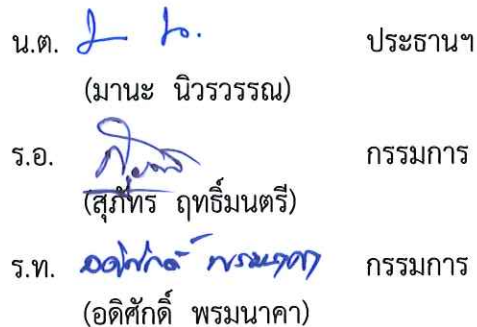 น.ต. ประธานฯ
(มานะ นิวรวรรณ)
ร.อ. กรรมการ
(สุภัทร ฤทธิ์มนตรี)
ร.ท. อดิศักดิ์ พรมนาคา กรรมการ
(อดิศักดิ์ พรมนาคา)